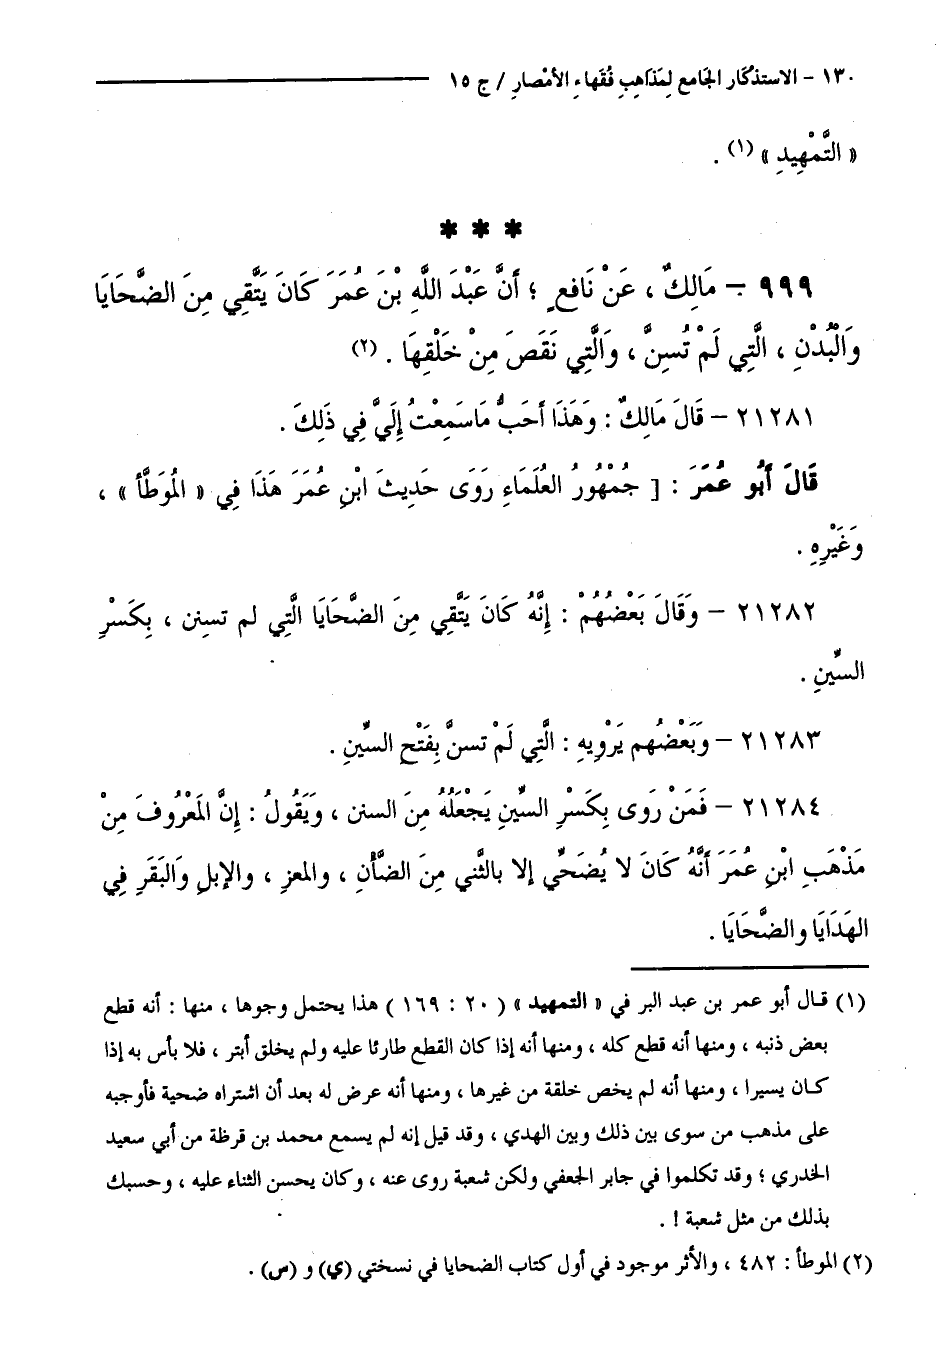 ١٣٠ - الاستذكار الجامع لمذاهب فُقَهاءِ الأمْصارِ / ج ١٥
« التَّمْهِيدِ » (١) .
***
٩٩٩ - مَالِكٌ ، عَنْ نَافِعٍ ؛ أَنَّ عَبْدَ اللَّهِ بْنَ عُمَرَ كَانَ يَتَّقِي مِنَ الضَّحَايَا
وَالْبُدْنِ ، الَّتِي لَمْ تُسِنَّ ، وَالَّتِي نَقَصَ مِنْ خَلْقِهَا . (٢)
٢١٢٨١ - قَالَ مَالِكٌ : وَهَذَا أَحَبُّ مَاسَمِعْتُ إِلَيَّ فِي ذَلِكَ .
قَالَ أَبُو عُمَرَ : [ جُمْهُورُ العُلَمَاءِ رَوَى حَدِيثَ ابْنِ عُمَرَ هَذَا فِي « المُوَطَّأ » ،
وَغَيْرِهِ .
٢١٢٨٢ - وَقَالَ بَعْضُهُمْ : إِنَّهُ كَانَ يَتَّقِي مِنَ الضَّحَايَا الَّتِي لم تسِنن ، بِكَسْرِ
السِّينِ .
٢١٢٨٣ - وَبَعْضُهُم يَرْوِيهِ : الَّتِي لَمْ تسنَّ بِفَتْحِ السِّينِ .
٢١٢٨٤ - فَمَنْ رَوَى بِكَسْرِ السِّينِ يَجْعَلُهُ مِنَ السنن ، وَيَقُولُ : إِنَّ المَعْرُوفَ مِنْ
مَذْهَبِ ابْنِ عُمَرَ أَنَّهُ كَانَ لا يُضَحِّي إلا بالثَّني مِنَ الضَّأْنِ ، والمعزِ ، والإبلِ وَالبَقَرِ فِي
الهَدَايَا والضَّحَايَا .
(١) قال أبو عمر بن عبد البر في « التمهيد » ( ٢٠ : ١٦٩ ) هذا يحتمل وجوها ، منها : أنه قطع
بعض ذنبه ، ومنها أنه قطع كله ، ومنها أنه إذا كان القطع طارئا عليه ولم يخلق أبتر ، فلا بأس به إذا
كان يسيرا ، ومنها أنه لم يخص خلقة من غيرها ، ومنها أنه عرض له بعد أن اشتراه ضحية فأوجبه
على مذهب من سوى بين ذلك وبين الهدي ، وقد قيل إنه لم يسمع محمد بن قرظة من أبي سعيد
الخدري ؛ وقد تكلموا في جابر الجعفي ولكن شعبة روى عنه ، وكان يحسن الثناء عليه ، وحسبك
بذلك من مثل شعبة ! .
(٢) الموطأ : ٤٨٢ ، والأثر موجود في أول كتاب الضحايا في نسختي (ي) و (س) .